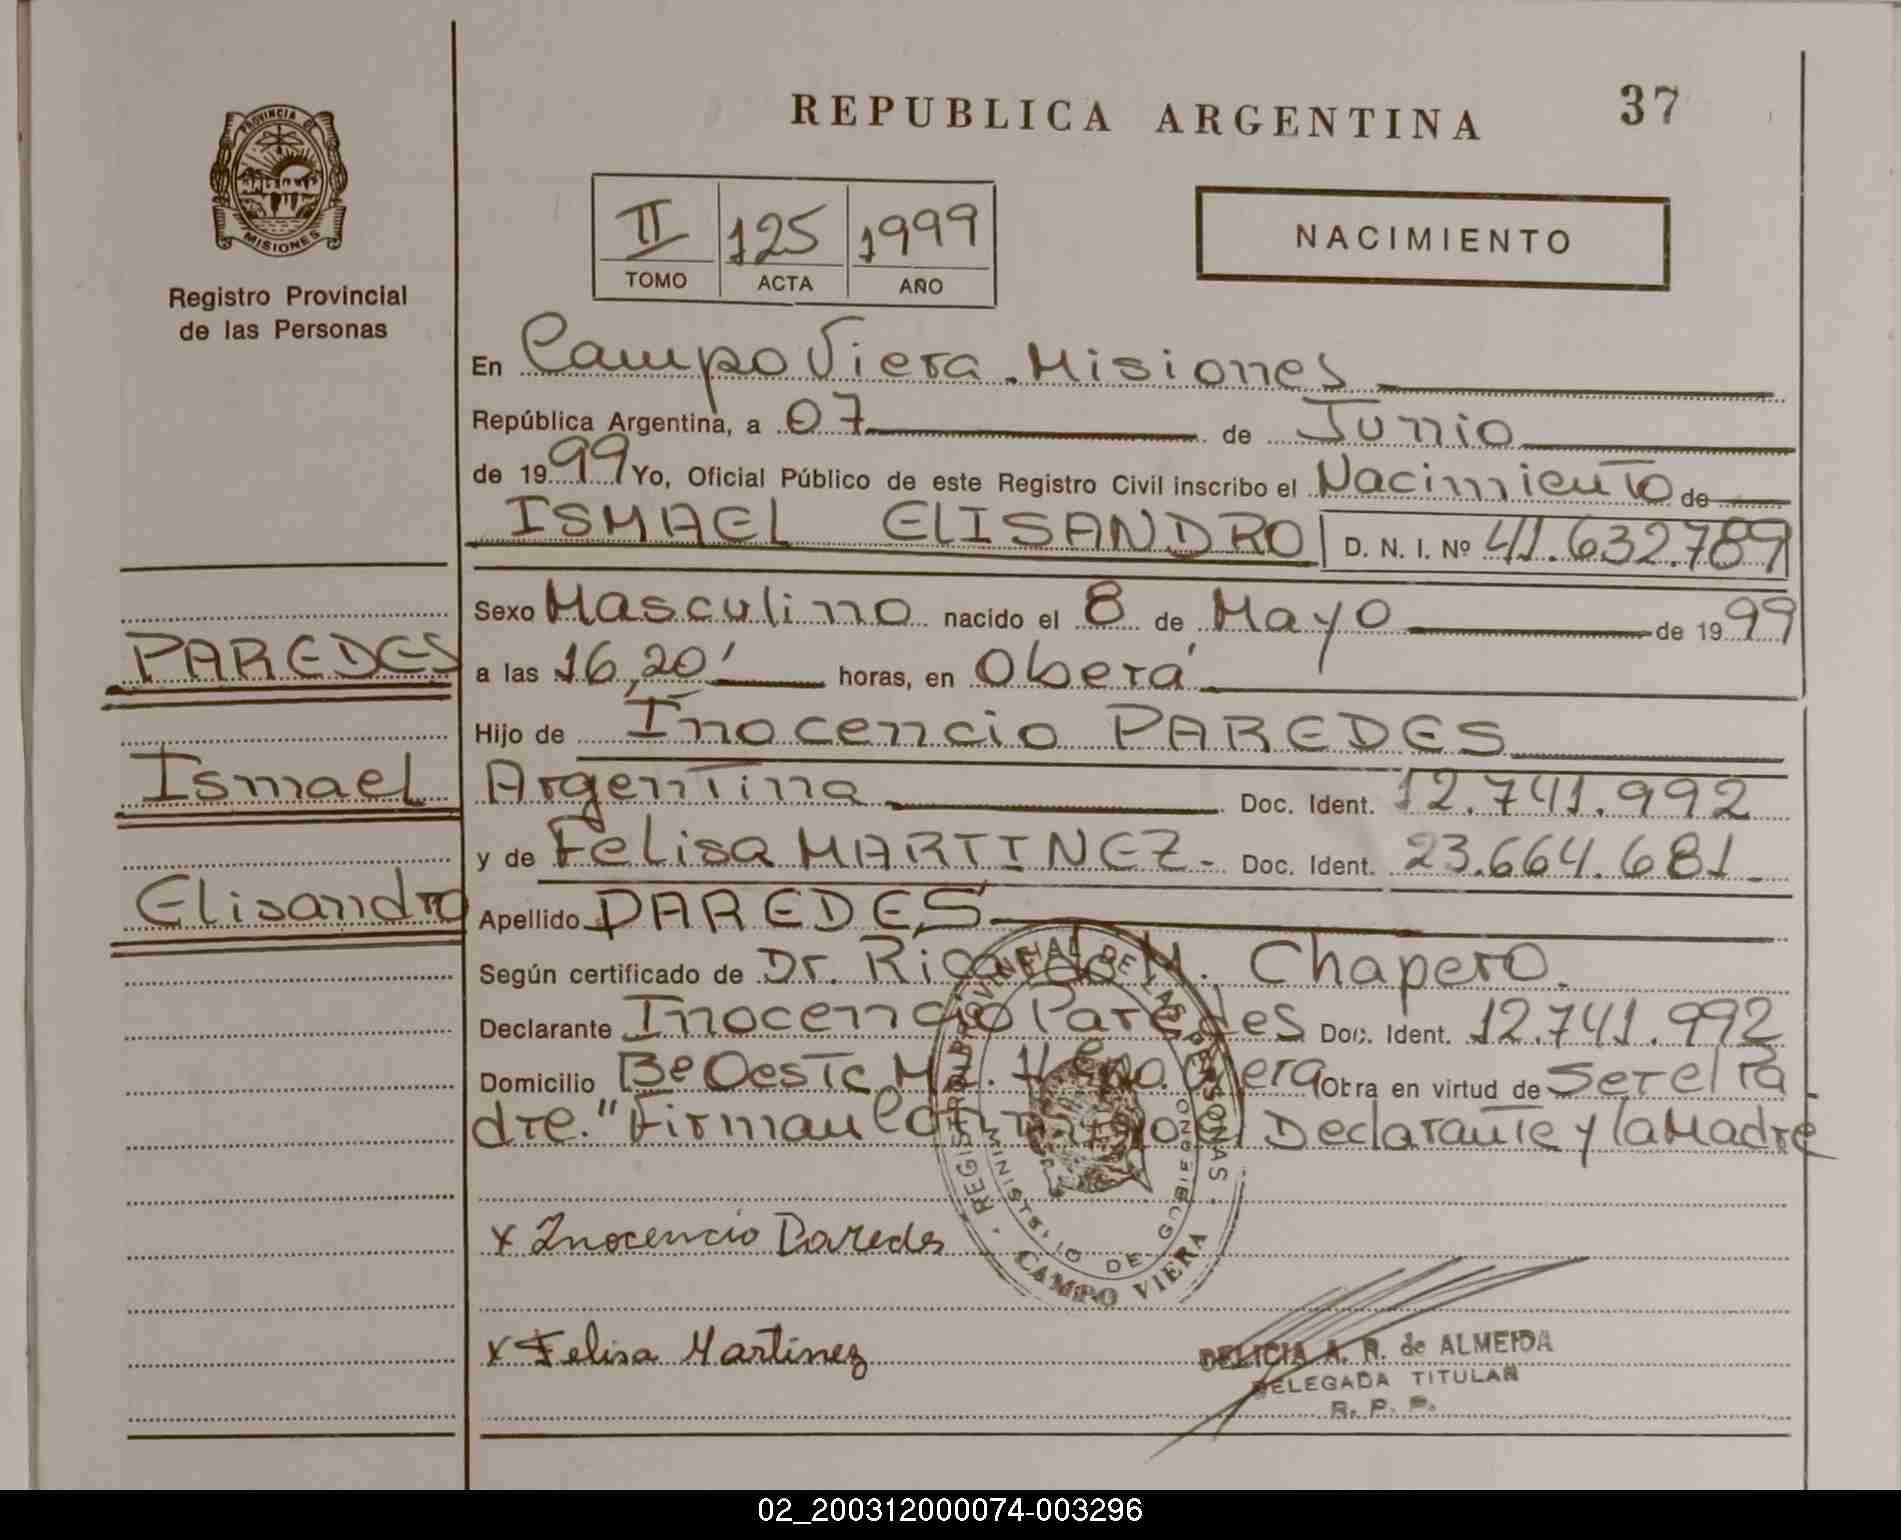 REPUBLICA ARGENTINA 37
PROVINCIA DE
MISIONES
Registro Provincial
de las Personas
II 125 1999
TOMO ACTA AÑO
NACIMIENTO
En Campo Viera. Misiones
República Argentina, a 07 de Junio
de 1999 Yo, Oficial Público de este Registro Civil inscribo el Nacimiento de
ISMAEL ELISANDRO D. N. I. Nº 41.632.789
Sexo Masculino nacido el 8 de Mayo de 1999
a las 16,20' horas, en Oberá
Hijo de Inocencio PAREDES
Argentina Doc. Ident. 12.741.992
y de Felisa MARTINEZ- Doc. Ident. 23.664.681
Apellido PAREDES
Según certificado de Dr. Ricardo M. Chapero.
Declarante Inocencio Paredes Doc. Ident. 12.741.992
Domicilio Bº Oeste Mz. Viera Obra en virtud de Ser el Pa
dre. "Firman el Declarante y la Madre
PAREDES
Ismael
Elisandro
REGISTRO PROVINCIAL DE LAS PERSONAS
MINISTERIO DE GOBIERNO
CAMPO VIERA
x Inocencio Paredes
x Felisa Martinez
DELICIA A. R. de ALMEIDA
DELEGADA TITULAR
R. P. P.
02_200312000074-003296